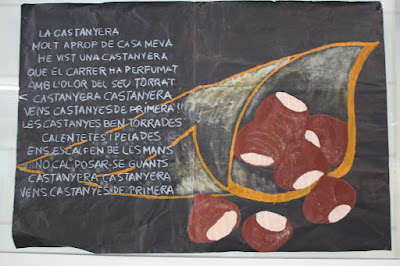 LA CASTANYERA
MOLT APROP DE CASA MEVA
HE VIST UNA CASTANYERA
QUE EL CARRER HA PERFUMAT
AMB L'OLOR DEL SEU TORRAT
CASTANYERA CASTANYERA
VENS CASTANYES DE PRIMERA!!
LES CASTANYES BEN TORRADES
CALENTETES I PELADES
ENS ESCALFEN BÉ LES MANS
NO CAL POSAR-SE GUANTS
CASTANYERA CASTANYERA
VENS CASTANYES DE PRIMERA